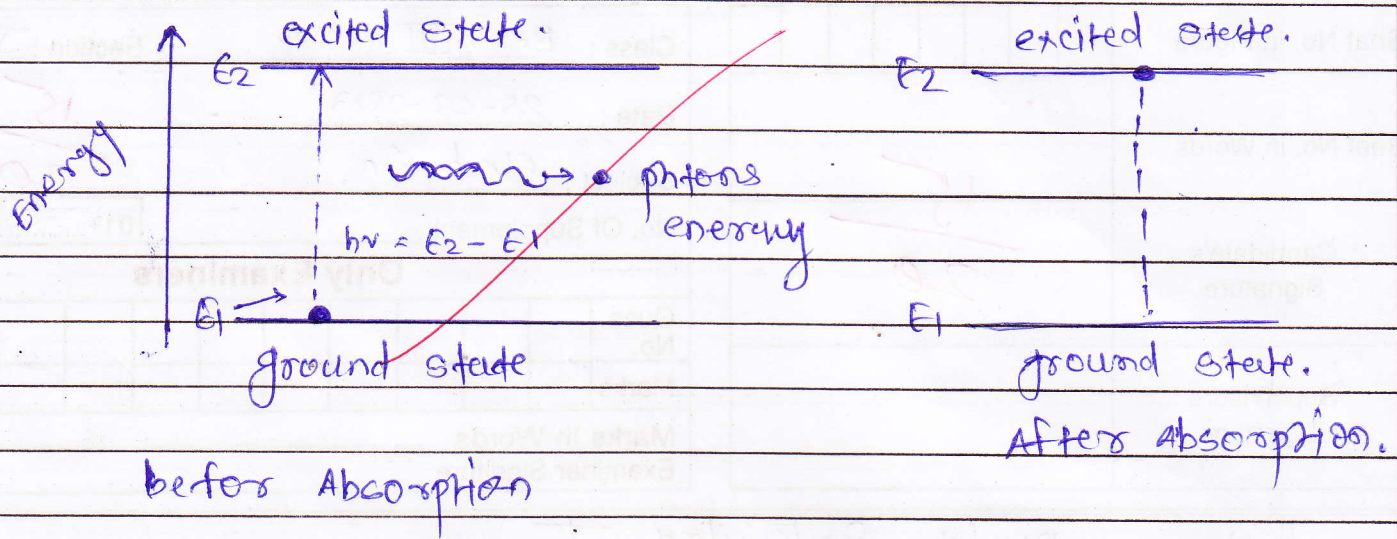 excited state.
E2
Energy
phtons
energy
hν = E2 - E1
E1
ground state
befor Absorption
excited state.
E2
E1
ground state.
After Absorption.